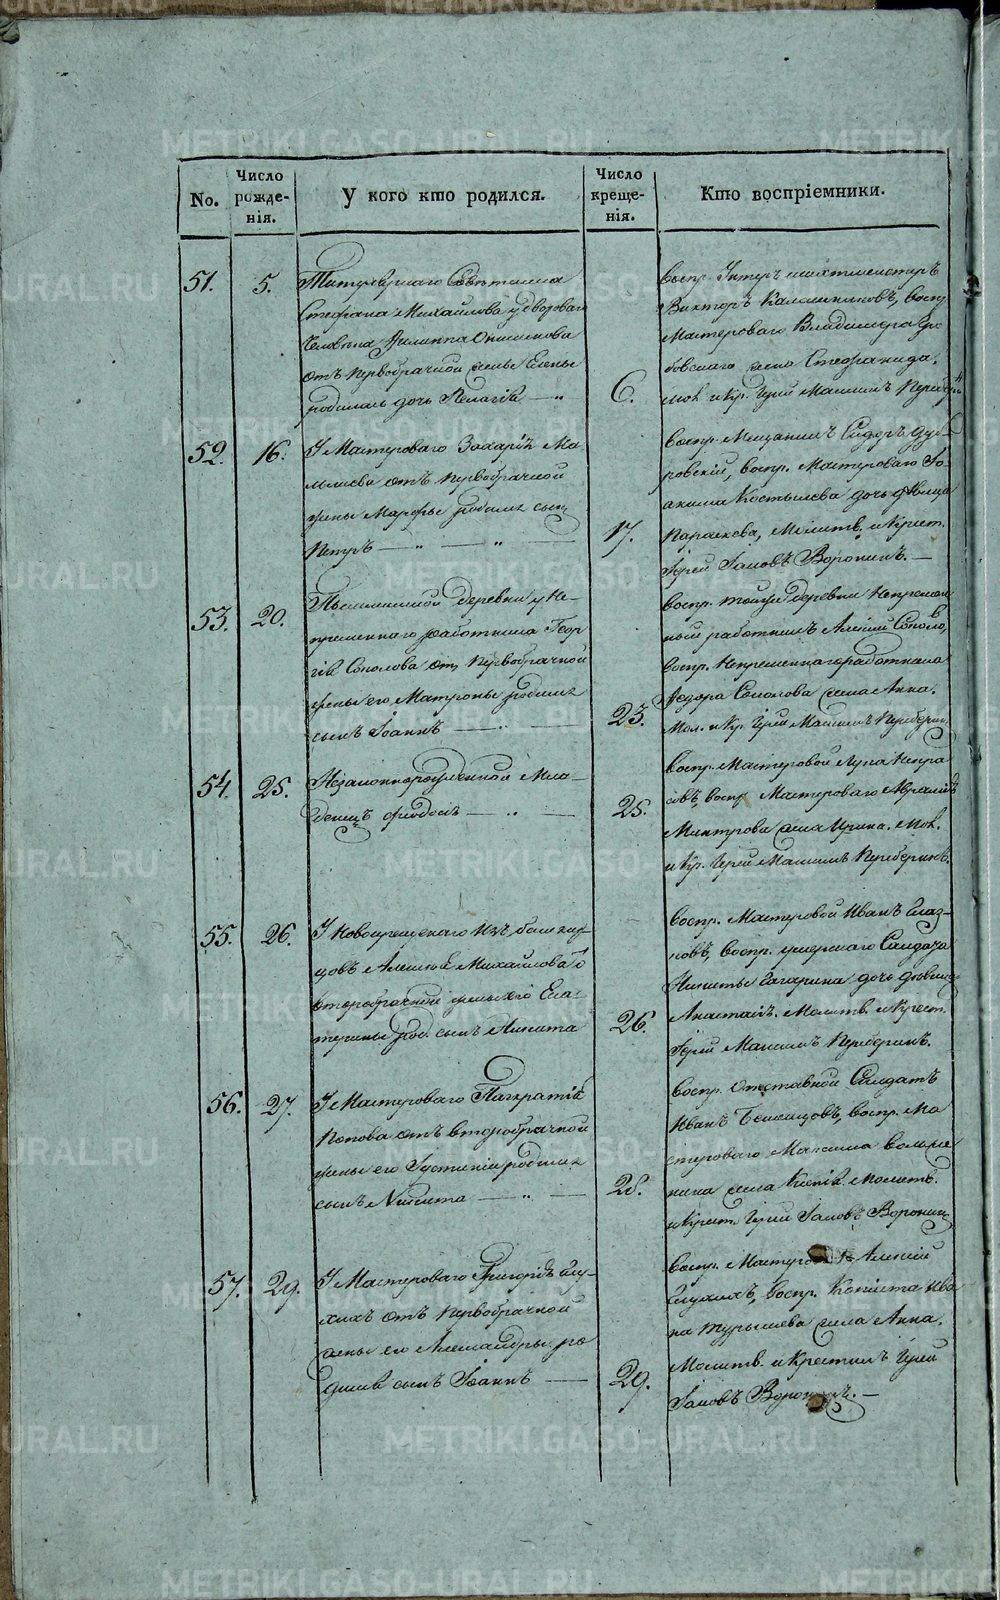 METRIKI.GASO-URAL.RU
No.
Число рожденія.
У кого кто родился.
Число крещенія.
Кто воспріемники.
51.
5.
Титулярнаго Совѣтника
Стефана Михайлова у двороваго
человѣка Филиппа
отъ первобрачной жены Елены
родилась дочь Пелагія
6.
Воспр.
Викторъ Калашниковъ, воспр.
Мастероваго Владимира
жена Стефанида.
мол. и кр. Іерей Максимъ
52.
16.
У Мастероваго Захарія Ма-
отъ первобрачной
жены Марфы родился сынъ
Петръ
17.
Воспр. Мещанинъ Сидоръ Дуб-
ровскій, воспр. Мастероваго Іо-
акима Костылева дочь дѣвица
Параскева, Молитв. и Крест.
Іерей Іаковъ Воронинъ.
53.
20.
деревни у Не-
премѣннаго работника Геор-
гія Соколова отъ первобрачной
жены его Матроны родился
сынъ Іоаннъ
23.
Воспр. тойже деревни Непремѣн-
ный работникъ Алексій Соколовъ,
воспр. Непремѣннаго работника
Федора Соколова жена Анна.
Мол. и кр. Іерей Максимъ
54.
25.
Незаконнорожденной Мла-
денецъ Феодосія
25.
Воспр. Мастеровой Лука Некра-
совъ, воспр. Мастероваго
жена Ирина. Мол.
и кр. Іерей Максимъ
55.
26.
У Новокрещенаго изъ башкир-
цовъ Алексѣя Михайлова отъ
второбрачной жены его Ека-
терины род. сынъ Никита
26.
Воспр. Мастеровой Иванъ Глаз-
ковъ, воспр. умершаго Солдата
Никиты Гагарина дочь дѣвица
Анастасія. Молитв. и Крест.
Іерей Максимъ
56.
27.
У Мастероваго Панкратія
Попова отъ второбрачной
жены его Іустиніи родился
сынъ Никита
28.
Воспр. отставной Солдатъ
Иванъ воспр. Ма-
стероваго Максима
жена Ксенія. Молитв.
и Крест. Іерей Іаковъ Воронинъ
57.
29.
У Мастероваго Григорія Глу-
хихъ отъ первобрачной
жены его Александры ро-
дился сынъ Іоаннъ
29.
Воспр. Мастеровой Алексій
Глухихъ, воспр. Копіиста Ива-
на Турышева жена Анна.
Молитв. и крестилъ Іерей
Іаковъ Воронинъ.